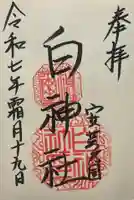 奉拝
安芸国
白神社
令和七年霜月十九日